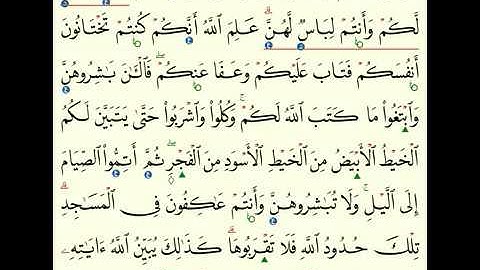 لَّكُمْ وَأَنتُمْ لِبَاسٌ لَّهُنَّ ۗ عَلِمَ ٱللَّهُ أَنَّكُمْ كُنتُمْ تَخْتَانُونَ
أَنفُسَكُمْ فَتَابَ عَلَيْكُمْ وَعَفَا عَنكُمْ ۖ فَٱلْـَٰٔنَ بَٰشِرُوهُنَّ
وَٱبْتَغُوا۟ مَا كَتَبَ ٱللَّهُ لَكُمْ ۚ وَكُلُوا۟ وَٱشْرَبُوا۟ حَتَّىٰ يَتَبَيَّنَ لَكُمُ
ٱلْخَيْطُ ٱلْأَبْيَضُ مِنَ ٱلْخَيْطِ ٱلْأَسْوَدِ مِنَ ٱلْفَجْرِ ۖ ثُمَّ أَتِمُّوا۟ ٱلصِّيَامَ
إِلَى ٱلَّيْلِ ۚ وَلَا تُبَٰشِرُوهُنَّ وَأَنتُمْ عَٰكِفُونَ فِى ٱلْمَسَٰجِدِ ۗ
تِلْكَ حُدُودُ ٱللَّهِ فَلَا تَقْرَبُوهَا ۗ كَذَٰلِكَ يُبَيِّنُ ٱللَّهُ ءَايَٰتِهِۦ